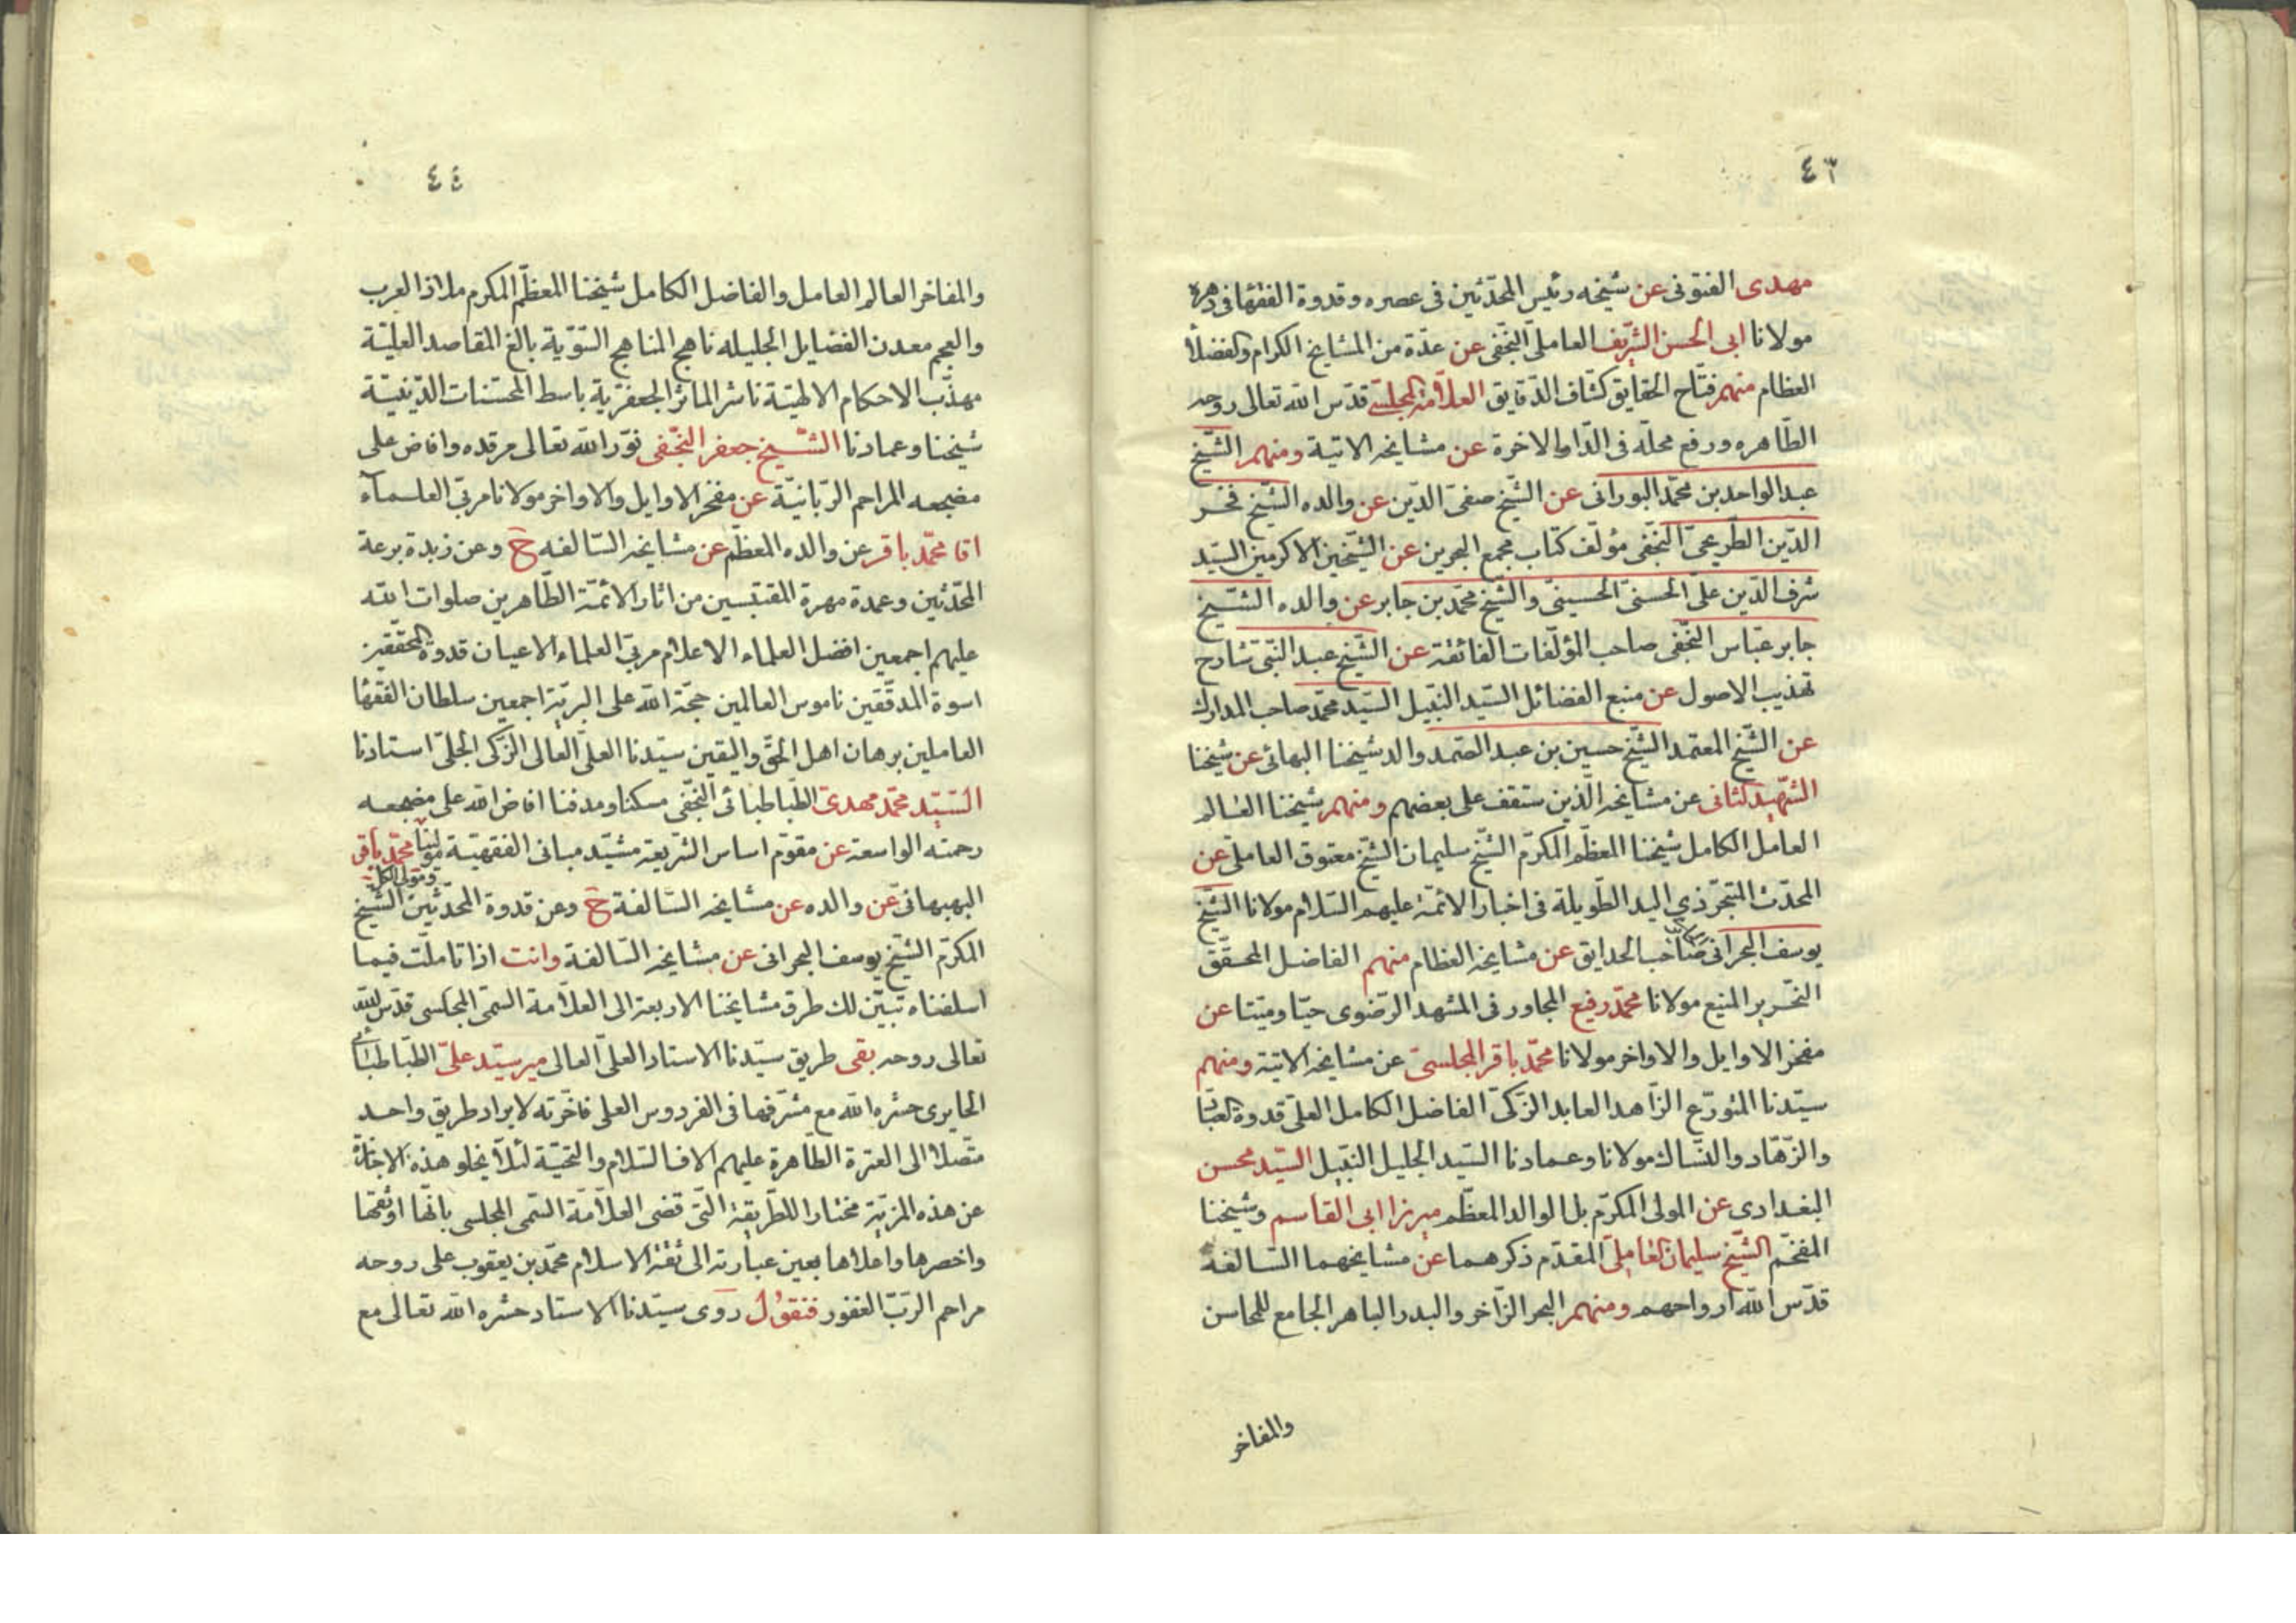 ٤٣
مهدى الفتونى عن شيخه رئيس المحدّثين فى عصره وقدوة الفقهآ فى دهره
مولانا ابى الحسن الشريف العاملى النجفى عن عدّة من المشايخ الكرام والفضلآ
العظام منهم فتّاح الحقايق كشّاف الدّقايق العلاّمة المجلسىّ قدّس الله تعالى روحه
الطّاهره ورفع محلّه فى الدّنيا والاخرة عن مشايخه الاتية ومنهم الشّيخ
عبد الواحد بن محمّد البورانى عن الشّيخ صفىّ الدّين عن والده الشّيخ فخر
الدّين الطّريحىّ النّجفى مؤلّف كتاب مجمع البحرين عن الشّيخين الاكرمين السّيد
شرف الدّين علىّ الحسنىّ الحسينىّ والشّيخ محمّد بن جابر عن والده الشّيخ
جابر عبّاس النّجفى صاحب المؤلّفات الفائقة عن الشّيخ عبد النّبى شارح
تهذيب الاصول عن منبع الفضائل السّيد النّبيل السّيد محمّد صاحب المدارك
عن الشّيخ المعتمد الشّيخ حسين بن عبد الصّمد والد شيخنا البهائى عن شيخنا
الشّهيد الثانى عن مشايخه الّذين ستقف على بعضهم ومنهم شيخنا العالم
العامل الكامل شيخنا المعظّم المكرّم الشّيخ سليمان الشّيخ معتوق العاملى عن
المحدّث المتبحّر ذى اليد الطّويلة فى اخبار الائمّة عليهم السّلام مولانا الشّيخ
يوسف البحرانى صاحب الحدايق عن مشايخه العظام منهم الفاضل المحقّق
النّحرير المنيع مولانا محمّد رفيع المجاور فى المشهد الرّضوى حيّا وميّتا عن
مفخر الاوايل والاواخر مولانا محمّد باقر المجلسىّ عن مشايخه الاتية ومنهم
سيّدنا المتورّع الزّاهد العابد الزّكىّ الفاضل الكامل العلىّ قدوة العبّاد
والزّهّاد والنّسّاك مولانا وعمادنا السّيد الجليل النّبيل السّيد محسن
البغدادى عن المولى المكرّم بل الوالد المعظّم ميرزا ابى القاسم وشيخنا
المفخّم الشّيخ سليمان العاملىّ المقدّم ذكرهما عن مشايخهما السّالفة
قدّس الله ارواحهم ومنهم البحر الزّاخر والبدر الباهر الجامع للمحاسن
والمفاخر
٤٤
والمفاخر العالم العامل والفاضل الكامل شيخنا المعظّم المكرم ملاذ العرب
والعجم معدن الفضايل الجليله ناهج المناهج السّويّة بالغ المقاصد العليّة
مهذّب الاحكام الالهيّة ناشر المآثر الجعفريّة باسط المحسّنات الدّينيّة
شيخنا وعمادنا الشّيخ جعفر النّجفى نوّر الله تعالى مرقده وافاض على
مضجعه المراحم الرّبّانيّة عن مفخر الاوايل والاواخر مولانا مربّى العلمآء
اقا محمّد باقر عن والده المعظّم عن مشايخه السّالفه ح وعن زبدة برعة
المحدّثين وعمدة مهرة المقتبسين من اثار الائمّة الطّاهرين صلوات الله
عليهم اجمعين افضل العلماء الاعلام مربّى العلماء الاعيان قدوة المحقّقين
اسوة المدقّقين ناموس العالمين حجّة الله على البريّة اجمعين سلطان الفقهآ
العاملين برهان اهل الحقّ واليقين سيّدنا العلىّ العالى الزّكى الجلىّ استادنا
السّيّد محمّد مهدىّ الطّباطبائى النّجفى مسكنا ومدفنا افاض الله على مضجعه
رحمته الواسعة عن مقوّم اساس الشّريعة مشيّد مبانى الفقهيّة مولينا ومولى الكلّ محمّد باقر
البهبهانىّ عن والده عن مشايخه السّالفة ح وعن قدوة المحدّثين الشّيخ
المكرّم الشّيخ يوسف البحرانى عن مشايخه السّالفة وانت اذا تاملت فيما
اسلفناه تبيّن لك طرق مشايخنا الاربعة الى العلاّمة السّمى المجلسى قدّس الله
تعالى روحه بقى طريق سيّدنا الاستاد العلىّ العالى مير سيّد علىّ الطّباطبائى
الحايرى حشره الله مع مشرّفها فى الفردوس العلى فاخّرته لايراد طريق واحد
متّصلا الى العترة الطّاهرة عليهم الاف السّلام والتحيّة لئلاّ يخلو هذه الاجازة
عن هذه المزيّة مختارا للطّريقة الّتى قضى العلاّمة السّمى المجلسى بانّها اوثقها
واخصرها واعلاها بعين عبارته الى ثقة الاسلام محمّد بن يعقوب على روحه
مراحم الرّبّ الغفور فنقول روى سيّدنا الاستاد حشره الله تعالى مع